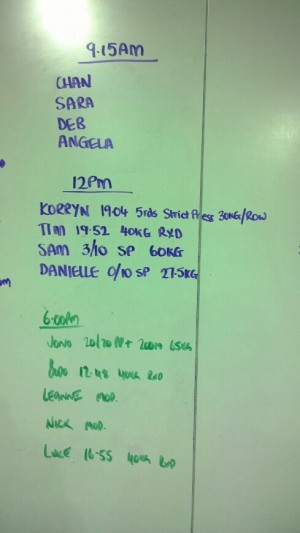 9.15AM
CHAN
SARA
DEB
ANGELA
12PM
KORRYN 19.04 5rds Strict Press 30KG/ROW
TIM 19.52 40KG RXD
SAM 3/10 SP 60KG
DANIELLE 0/10 SP 27.5KG
6.00PM
JONO 20/20 PP + 200M 65KG
12.48 40KG RXD
LEANNE MOD.
NICK MOD.
LUKE 16.55 40KG RXD